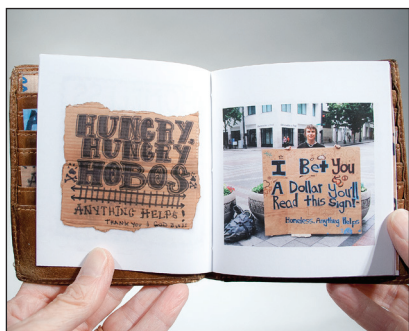 HUNGRY,
HUNGRY
HOBOS
ANYTHING HELPS!
THANK YOU
I Bet You
A Dollar You'll
Read this Sign!
Homeless. Anything Helps